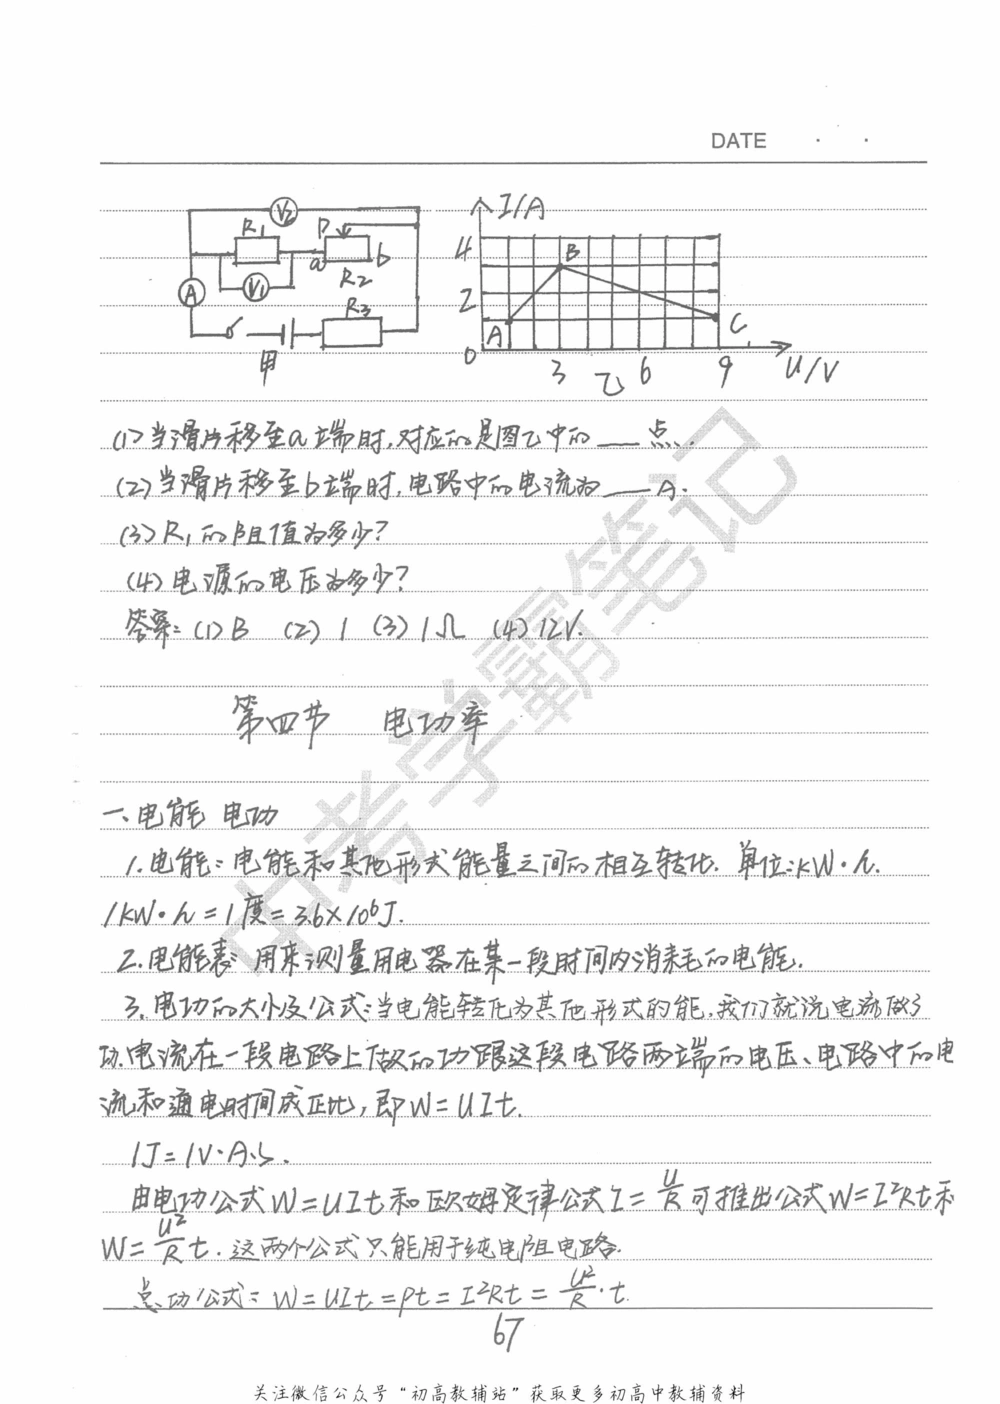 DATE · ·
V2
R1 P
a b
R2
V1
A
R3
甲
I/A
4
B
2
A C
0 3 6 9 U/V
乙
(1)当滑片移至a端时,对应的是图乙中的___点.
(2)当滑片移至b端时,电路中的电流为___A.
(3)R1的阻值为多少?
(4)电源的电压为多少?
答案:(1)B (2)1 (3)1Ω (4)12V.
第四节 电功率
一、电能 电功
1.电能:电能和其他形式能量之间的相互转化. 单位:kW·h.
1kW·h=1度=3.6×10⁶J.
2.电能表:用来测量用电器在某一段时间内消耗的电能.
3.电功的大小及公式:当电能转化为其他形式的能,我们就说电流做了
功.电流在一段电路上做的功跟这段电路两端的电压、电路中的电
流和通电时间成正比,即W=UIt.
1J=1V·A·s.
由电功公式W=UIt和欧姆定律公式I=U/R可推出公式W=I²Rt和
W=U²/R t.这两个公式只能用于纯电阻电路.
总功公式:W=UIt=Pt=I²Rt=U²/R·t.
67
中考学霸笔记
关注微信公众号“初高教辅站”获取更多初高中教辅资料